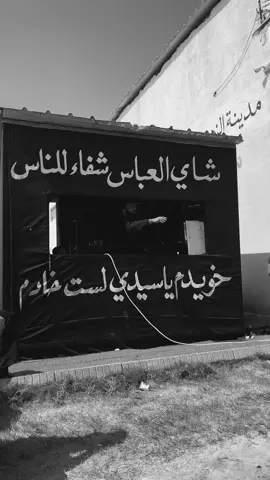 شاي العباس شفاء للناس
خويدم ياسيدي لست خادم
مدينة